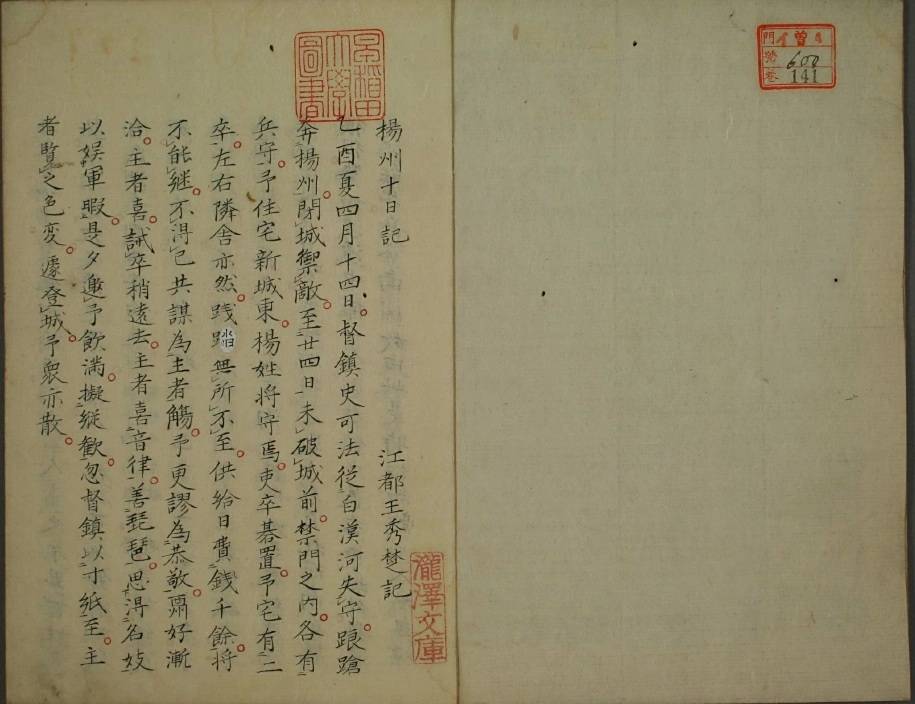 門 曾 4
號 600
卷 141
早稻田大學圖書
楊州十日記
江都王秀楚記
乙酉夏四月十四日。督鎮史可法從白漢河失守。踉蹌
奔揚州。閉城禦敵。至廿四日未破城前。禁門之内。各有
兵守。予住宅新城東。楊姓将守焉。吏卒碁置。予宅有二
卒。左右隣舍亦然。践踏無所不至。供給日費錢千餘。将
不能継。不得已共謀為主者觴。予更謬為恭敬。酬好漸
洽。主者喜。誡卒稍遠去。主者喜音律。善琵琶。思得名妓
以娯軍暇。是夕邀予飲。満擬縦歡。忽督鎮以寸紙至。主
者覽之色変。遽登城。予衆亦散。
瀧澤文庫